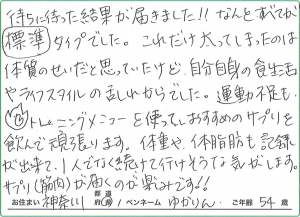 待ちに待った結果が届きました!! なんとすべてが
標準タイプでした。これだけ太ってしまったのは
体質のせいだと思っていたけど、自分自身の食生活
やライフスタイルの乱れからでした。運動不足も。
トレーニングメニューを使っておすすめのサプリを
飲んで頑張ります。体重や、体脂肪も記録
が出来て、1人でなく続けて行けそうな気がします。
サプリ(筋肉)が届くのが楽しみです!!
お住まい 神奈川 都道府県 / ペンネーム ゆかりん。 ご年齢 54 歳